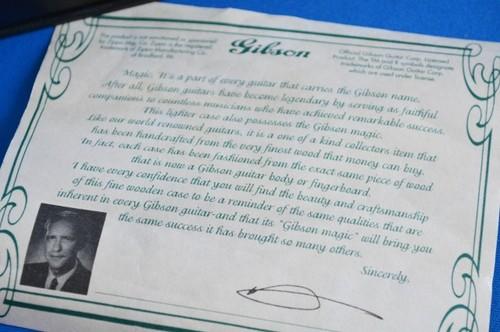 This product is not sponsored or approved
by Zippo Mfg. Co. Zippo is the registered
trademark of Zippo Manufacturing Co.
of Bradford, PA
Gibson
Official Gibson Guitar Corp. Licensed
Product. The TM and ® symbols designate
trademarks of Gibson Guitar Corp.
which are used under license.
Magic. It's a part of every guitar that carries the Gibson name.
After all, Gibson guitars have become legendary by serving as faithful
companions to countless musicians who have achieved remarkable success.
This lighter case also possesses the Gibson magic.
Like our world renowned guitars, it is a one of a kind collectors item that
has been handcrafted from the very finest wood that money can buy.
In fact, each case has been fashioned from the exact same piece of wood
that is now a Gibson guitar body or fingerboard.
I have every confidence that you will find the beauty and craftsmanship
of this fine wooden case to be a reminder of the same qualities that are
inherent in every Gibson guitar-and that its "Gibson magic" will bring you
the same success it has brought so many others.
Sincerely,